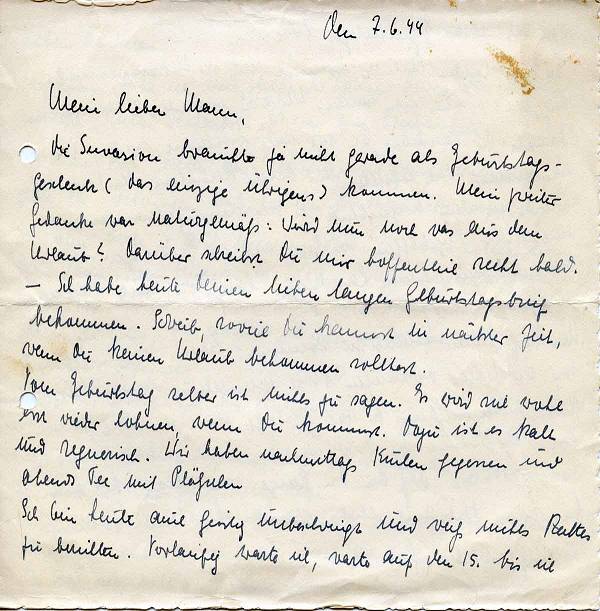 den 7.6.44
Mein lieber Mann,
die Invasion brauchte ja nicht gerade als Geburtstags-
geschenk (das einzige übrigens) kommen. Mein zweiter
Gedanke war naturgemäß: wird nun noch was aus dem
Urlaub? Darüber schreibst Du mir hoffentlich recht bald.
– Ich habe heute Deinen lieben langen Geburtstagsbrief
bekommen. Schreib, soviel Du kannst in nächster Zeit,
wenn Du keinen Urlaub bekommen solltest.
Vom Geburtstag selber ist nichts zu sagen. Es wird sich wohl
erst wieder lohnen, wenn Du kommst. Dazu ist es kalt
und regnerisch. Wir haben nachmittags Kuchen gegessen und
abends Tee mit Plätzchen
Ich bin heute auch geistig unbeschwingt und weiß nichts Rechtes
zu berichten. Vorläufig warte ich, warte auf den 15. bis ich